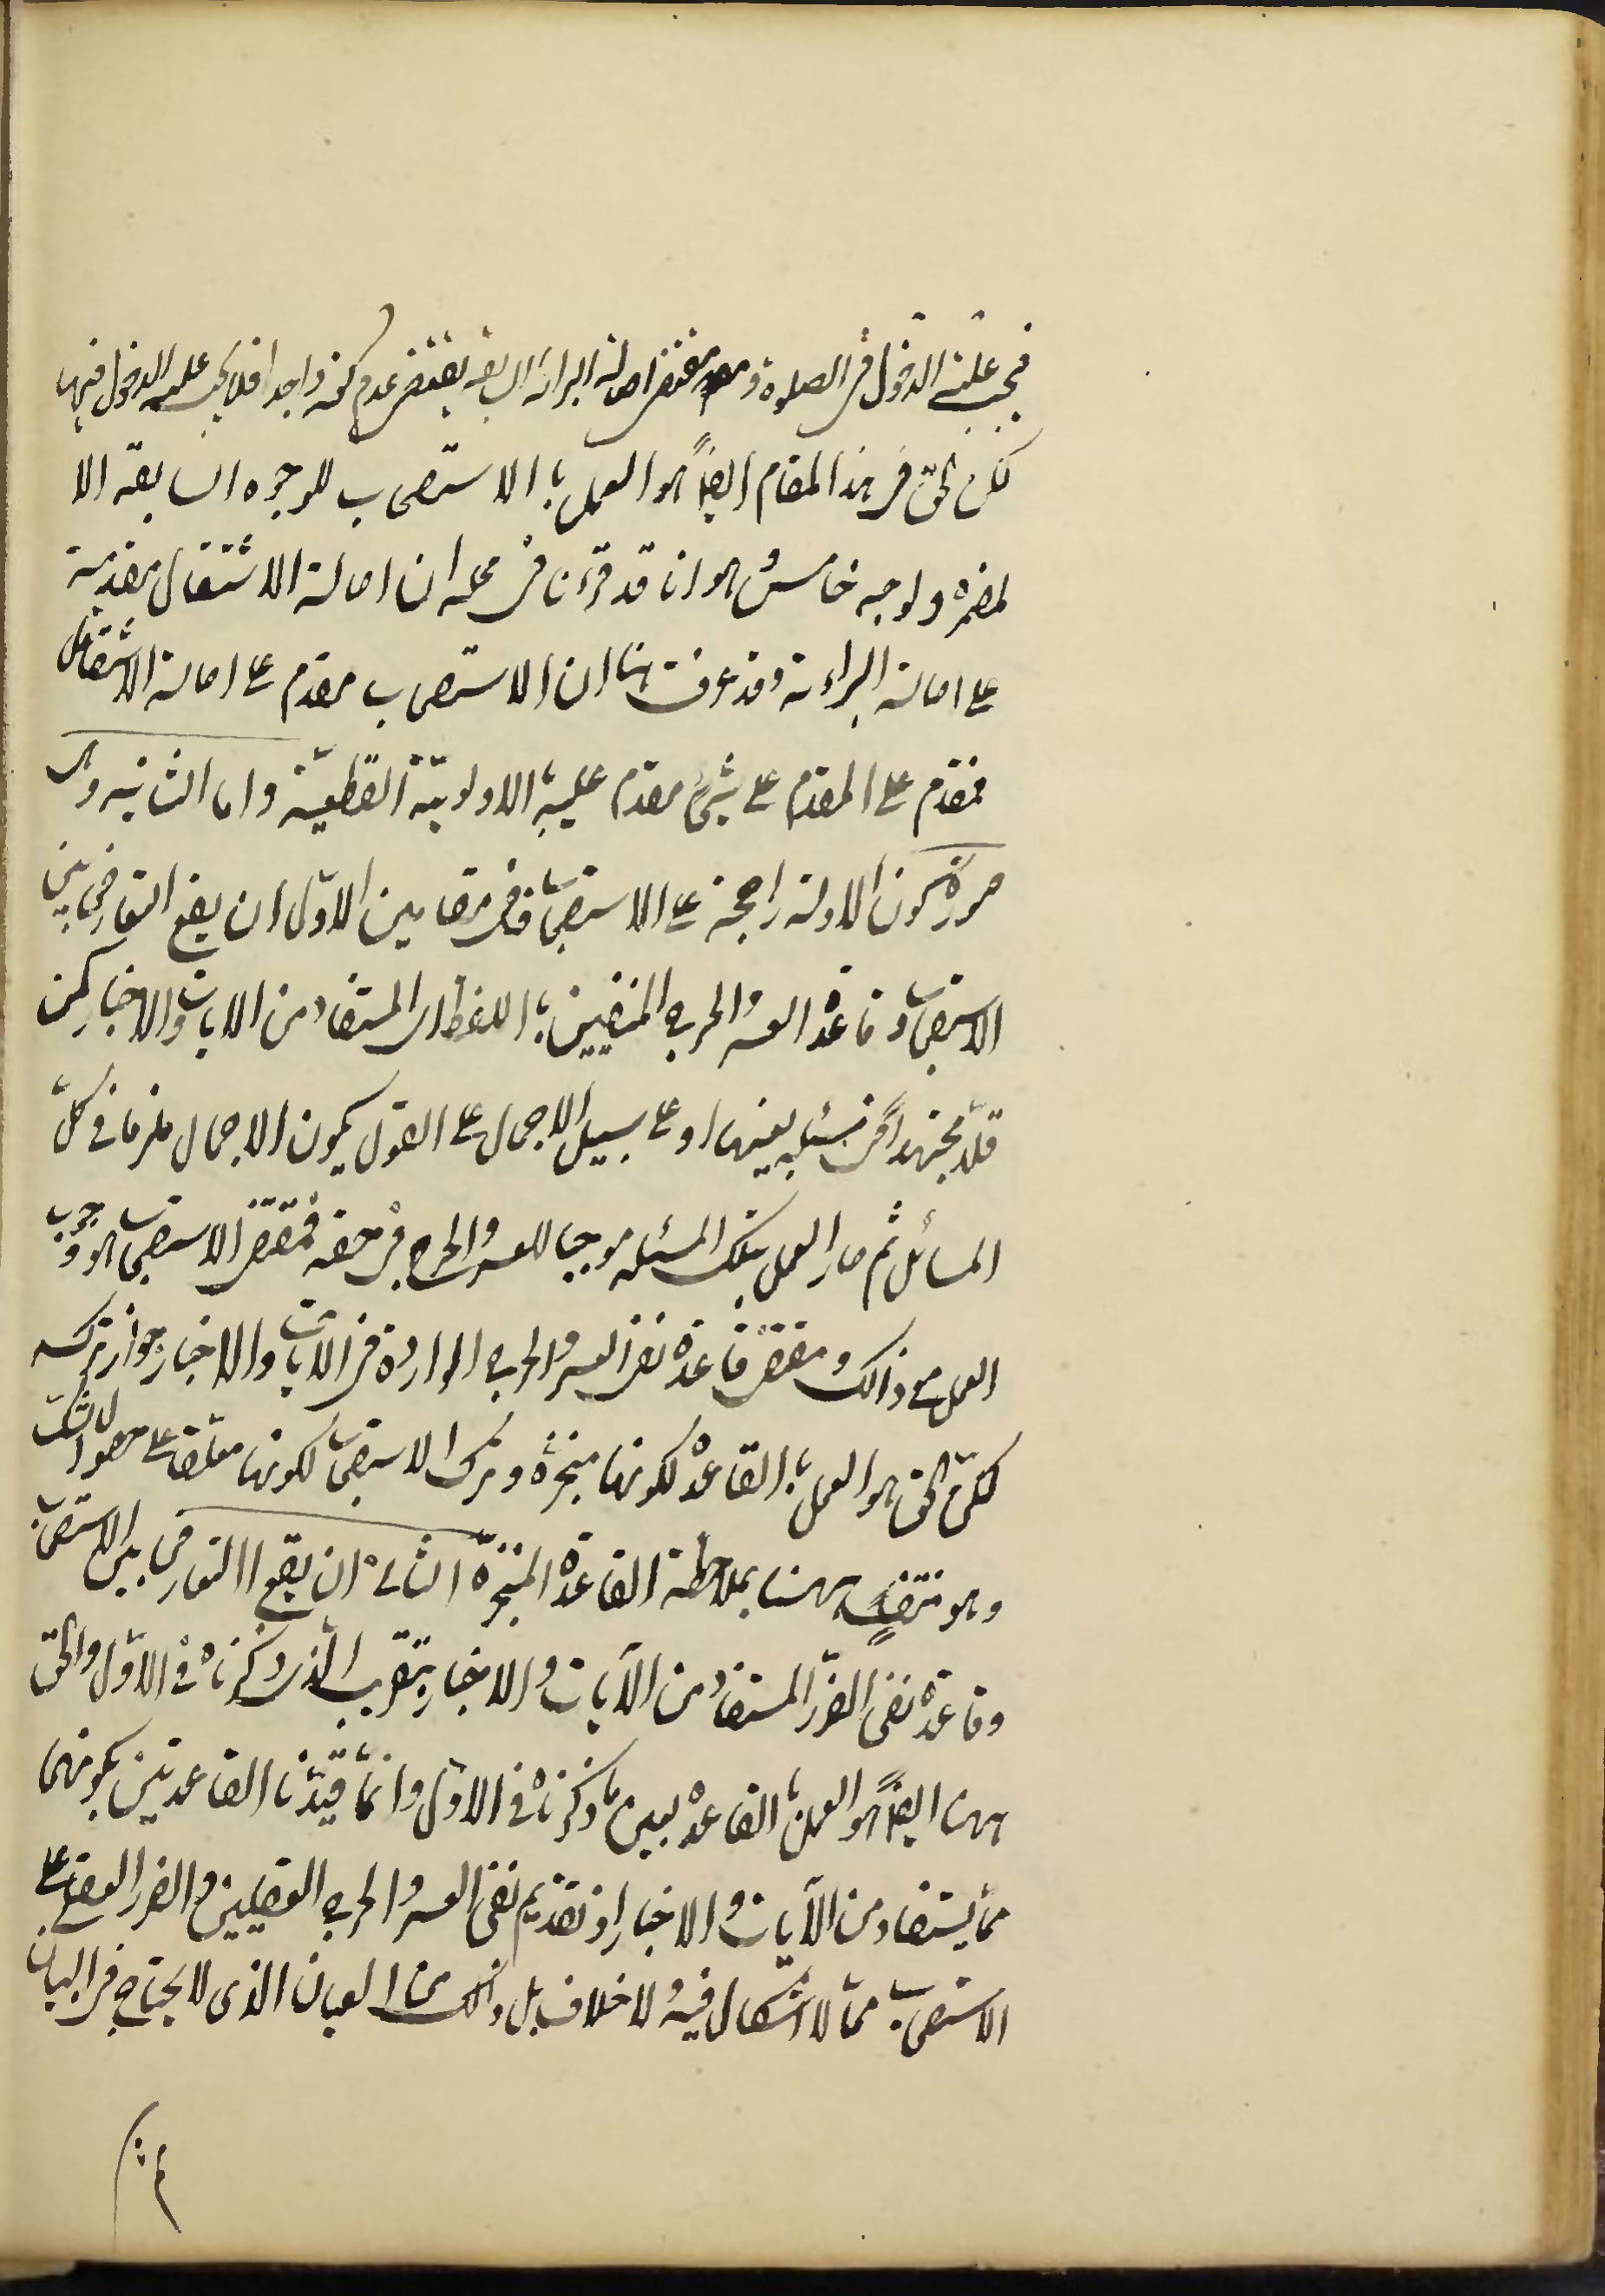 فيجب عليه الدخول فى الصلوة و مقتضى اصالة البرائة السابقه يقتضى عدم كونه واجدا فلا يجب عليه الدخول فيها
لكن الحق فى هذا المقام ايضاً هو العمل باالاستصحاب للوجوه السابقه الا
لمضمره ولوجه خامس و هو انا قد قررنا فى محله ان اصالة الاشتغال مقدمة
على اصالة البرائة وقد عرفت هنا ان الاستصحاب مقدم على اصالة الاشتغال
فمقدم على المقدم على شئ مقدم عليه باالاولوية القطعية واما الثانيه وهى
صورة كون الادلة راجحة على الاستصحاب ففى مقامين الاول ان يقع التعارض بين
الاستصحاب وقاعدة العسر والحرج المنفيين باللفظ اى المستفاد من الايات والاخبار كمن
قلد مجتهداً فى مسئله بعينها او على سبيل الاجمال على القول بكون الاجمال ملزما فى كل
المسائل ثم صار العمل بتلك المسئله موجبا للعسر والحرج فى حقه فمقتضى الاستصحاب هو وجوب
العمل مع ذالك ومقتضى قاعدة نفى العسر والحرج الواردة فى الايات والاخبار جواز تركه
لكن الحق هو العمل باالقاعدة لكونها منجزة وترك الاستصحاب لكونها معلقا على حصول الشك
وهو منتفٍ ههنا بملاحظة القاعدة المنجزة الثانى ان يقع االتعارض بين الاستصحاب
وقاعدة نفى الضرر المستفاد من الآيات والاخبار بتقريب الذى ذكرناه فى الاول والحق
ههنا ايضاً هو العمل باالقاعدة بعين ما ذكرناه فى الاول وانما قيدنا القاعدتين بكونهما
مما يستفاد من الآيات والاخبار اذ تقديم نفى العسر والحرج العقليين والضرر العقلى على
الاستصحاب مما لا اشكال فيه ولا خلاف بل ذالك من العيان الذى لا يحتاج فى البيان